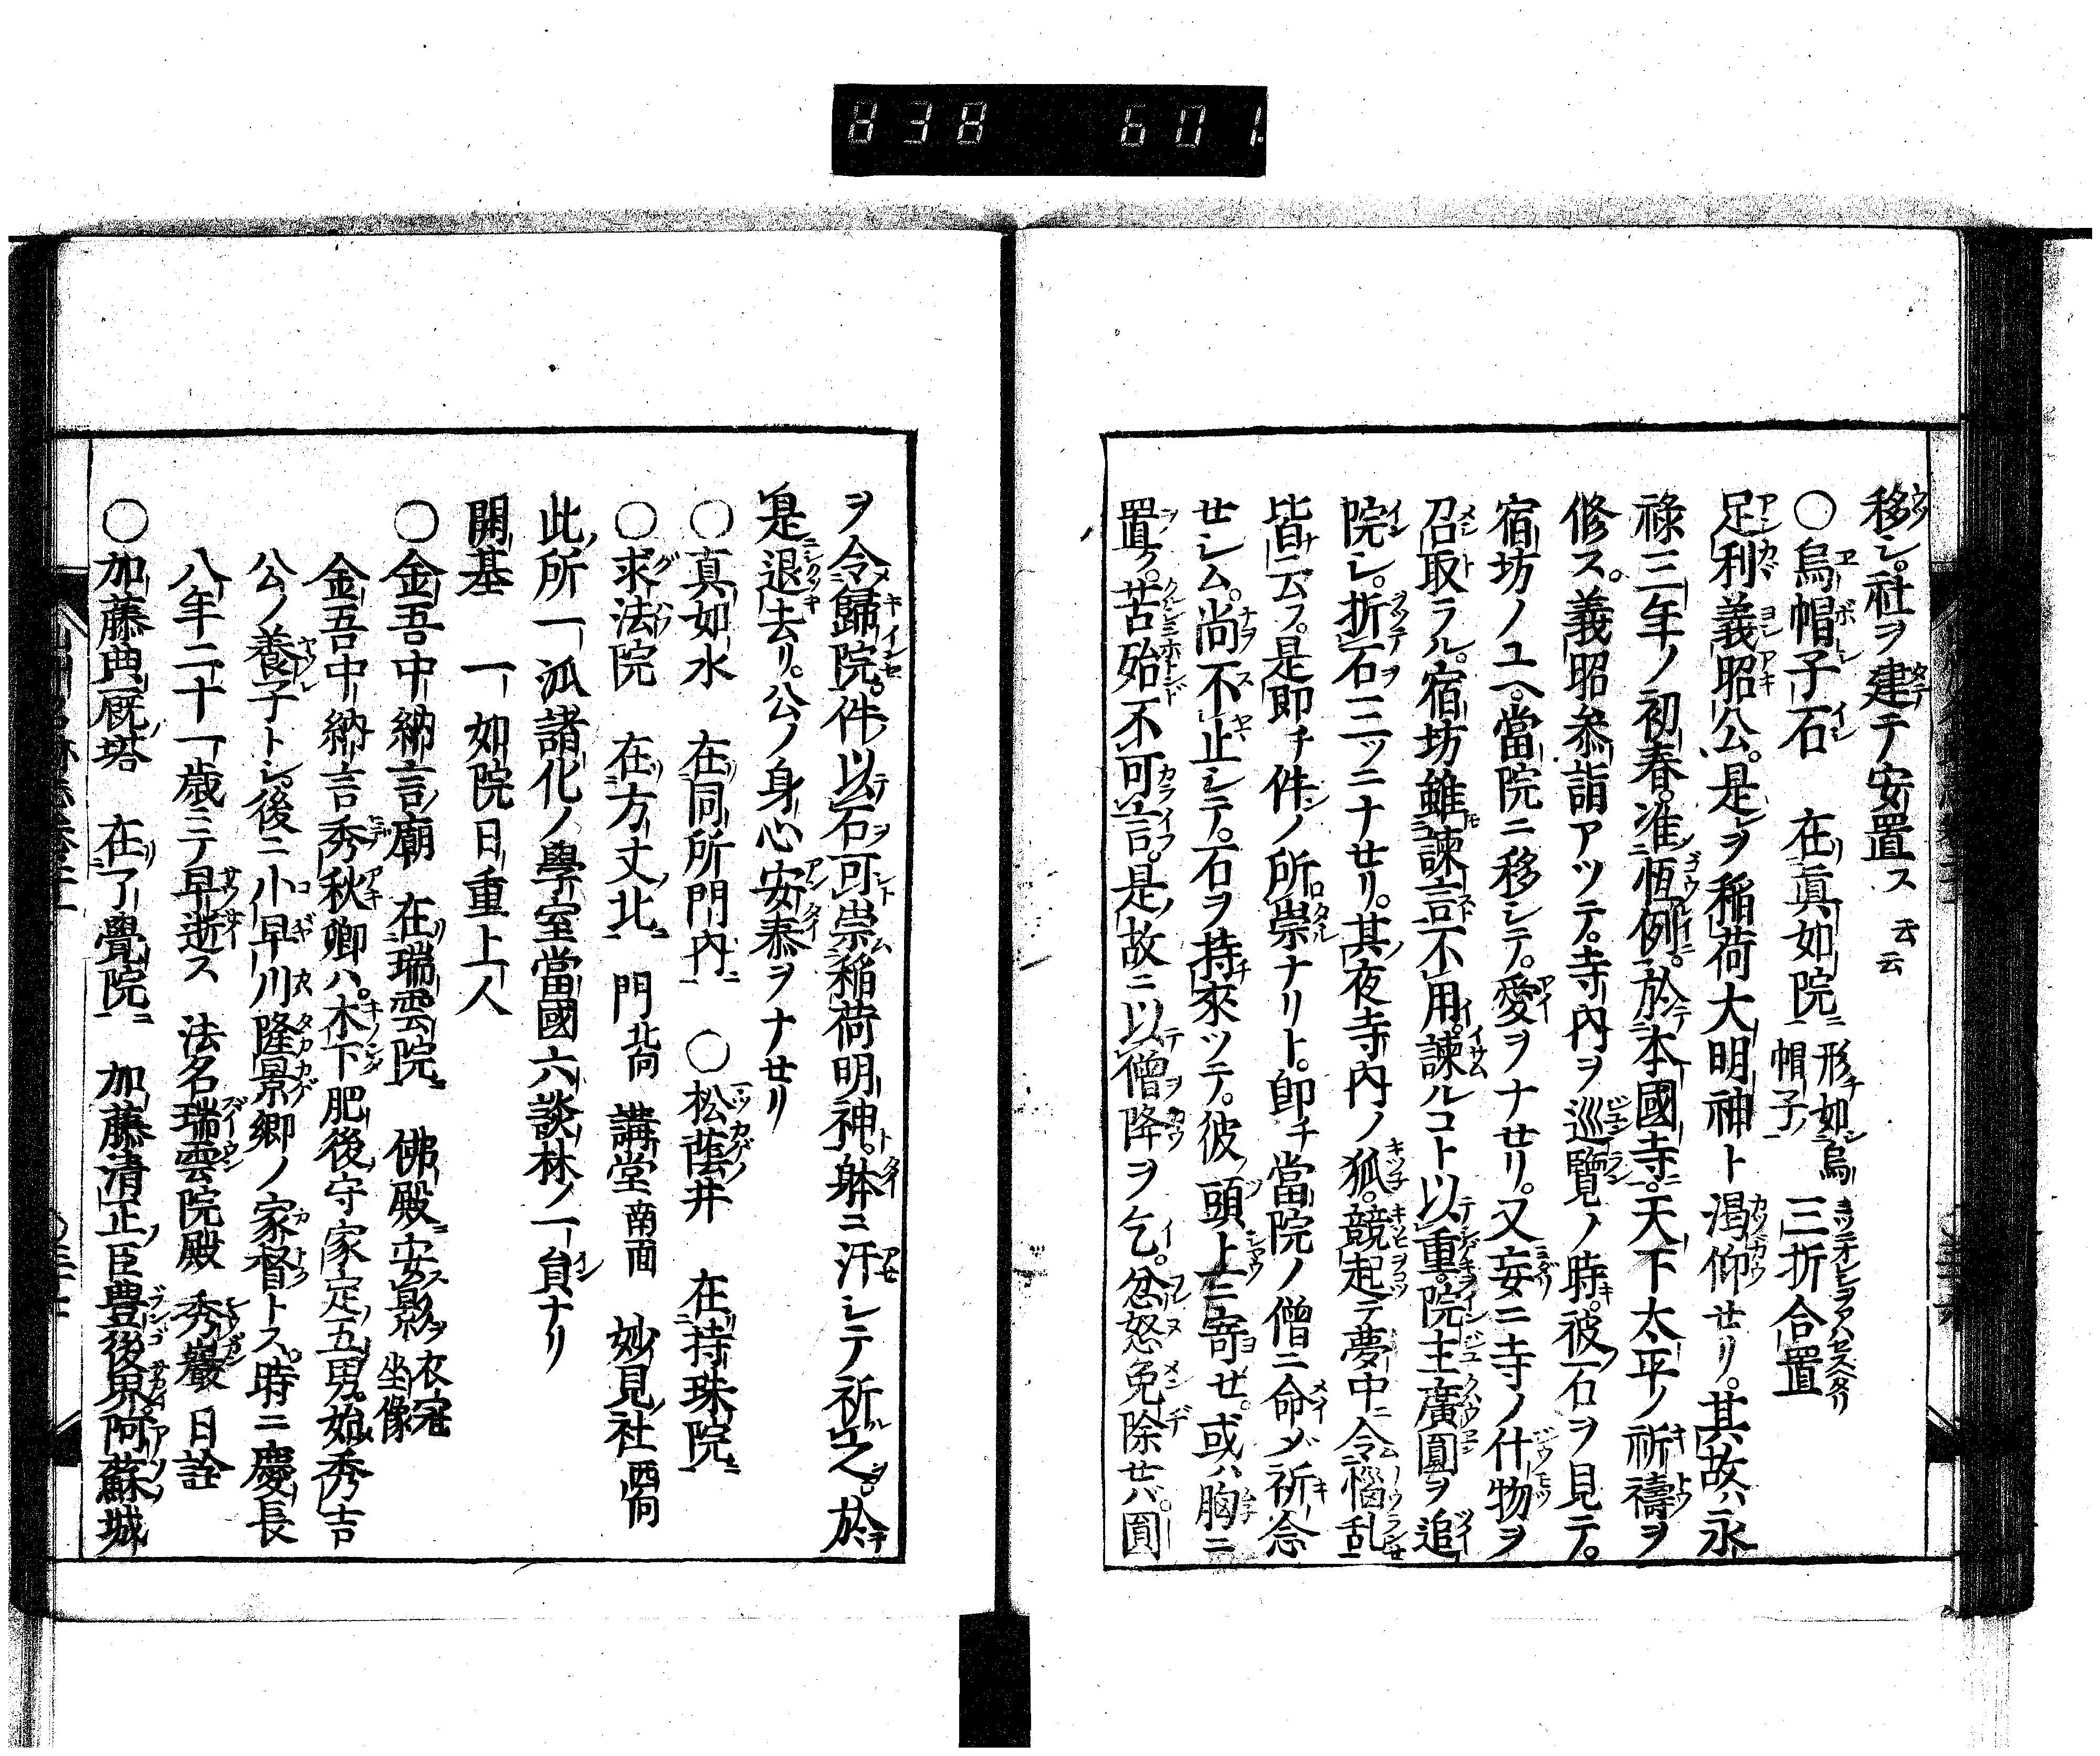 838 601
移シ。社ヲ建テ安置ス 云云
〇烏帽子石 在眞如院ニ 形チ如烏帽子ノ 三折合置
足利義昭公。是ヲ稲荷大明神ト渇仰セリ。其故ハ永
祿三年ノ初春。准恆例ニ。於テ本國寺ニ。天下太平ノ祈禱ヲ
修ス。義昭叅詣アツテ。寺內ヲ巡覽ノ時。彼石ヲ見テ。
宿坊ノユヘ。當院ニ移シテ。愛ヲナセリ。又妄ニ寺ノ什物ヲ
召取ラル。宿坊雖諫言不用。諫ルコト以テ重。院主廣圓ヲ追
院シ。折石ヲ三ツニナセリ。其夜寺內ノ狐。競起テ夢中ニ令惱乱
皆云フ。是卽チ件ノ所崇ナリト。卽チ當院ノ僧ニ命ジ祈念
セシム。尚不止シテ。石ヲ持來ツテ。彼頭上ニ寄セ。或ハ胸ニ
置ク。苦殆不可言。是故ニ以僧ヲ降ヲ乞。忿怒免除セバ。圓
ヲ令歸院。件以石ヲ可崇稲荷明神ト。躰ニ汗シテ祈之ヲ。於
是退去リ。公ノ身心安泰ヲナセリ
〇真如水 在同所門內ニ 〇松蔭井 在持珠院ニ
〇求法院 在方丈北ニ 門北向 講堂南面 妙見社西向
此所一派諸化ノ學室當國六談林ノ一負ナリ
開基 一如院日重上人
〇金吾中納言廟 在瑞雲院ニ 佛殿ニ安影ヲ 衣冠坐像
金吾中納言秀秋卿ハ。木下肥後守家定五男。始秀吉
公ノ養子トシ。後ニ小早川隆景卿ノ家督トス。時ニ慶長
八年二十一歲ニテ早逝ス 法名瑞雲院殿 秀巖 日詮
〇加藤典厩塔 在了覺院ニ 加藤清正臣豊後界。阿蘇城